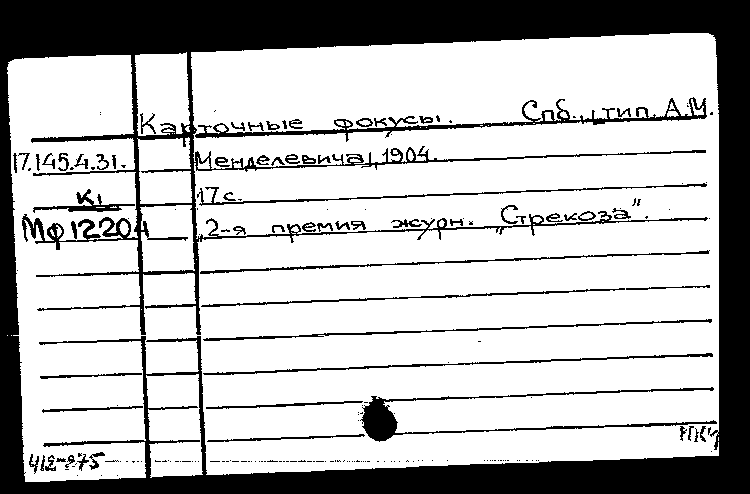 Карточные фокусы. Спб., тип. А.М.
17.145.4.31. Менделевича, 1904.
К1 17 с.
Мф 12204 2-я премия журн. „Стрекоза".
412-875